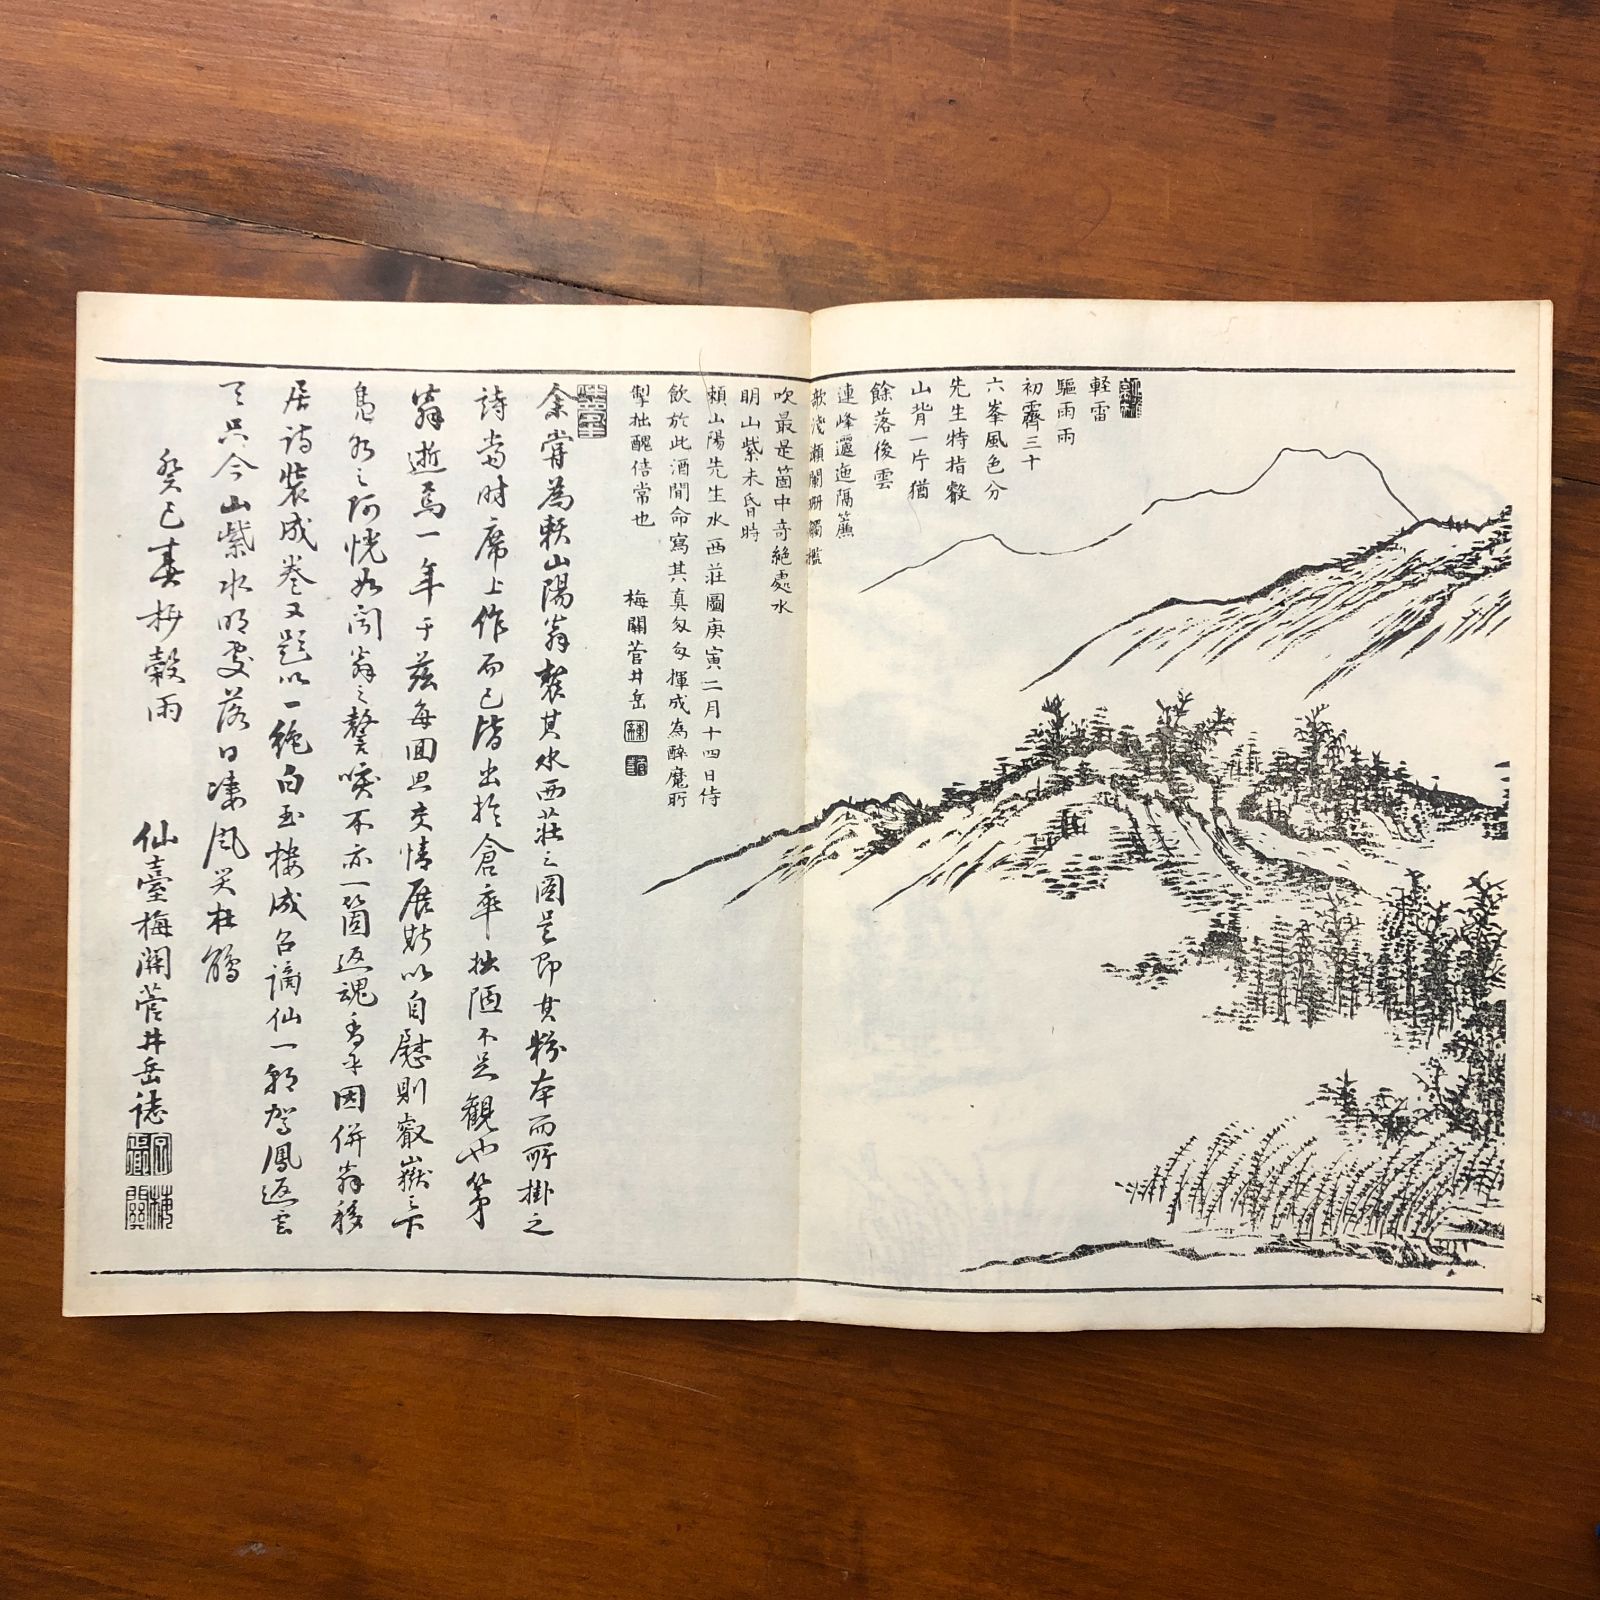 軽雷
驅雨雨
初霽三十
六峯風色分
先生特指蒼
山背一片猶
餘落後雲
連峰邐迤隔簾
欹淺瀬闌珊觸檻
吹最是箇中奇絶處水
明山紫未昏時
頼山陽先生水西莊圖庚寅二月十四日侍
飲於此酒間命寫其真匆匆揮成為醉魔所
掣拙醜倍常也
梅關菅井岳
余嘗為頼山陽翁製其水西莊之圖是即其粉本而所掛之
詩當時席上作而已皆出於倉卒拙陋不足觀也第
翁逝焉一年于茲每回思交情展斯以自慰則叡嶽之下
鳧水之阿恍如聞翁之謦咳不亦一箇返魂香乎因併翁移
居詩裝成巻又題以一絶白玉樓成召謫仙一朝駕鳳返雲
天只今山紫水明處落日淒風哭杜鵑
癸巳春抄穀雨
仙臺梅關菅井岳誌
梅關